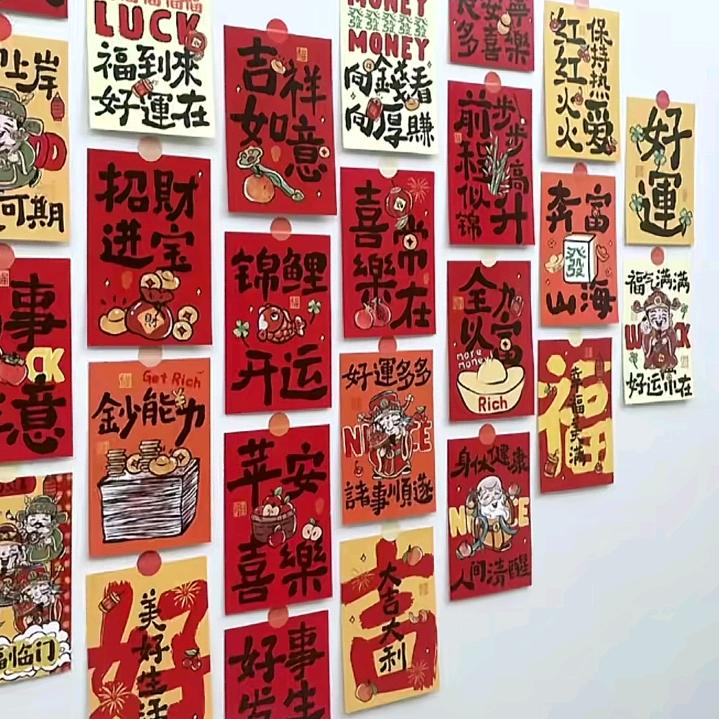 上岸
可期
事
CK
意
福临门
LUCK
福到來
好運在
招財
进宝
Get Rich
鈔能力
好
美好生活
吉祥
如意
锦鲤
开运
苹安
喜樂
好事
发生
MONEY
發發發發發
MONEY
向錢看
向厚賺
喜樂
常在
好運多多
NICE
諸事順遂
吉
大吉大利
多喜樂
前程似锦
步步高升
全力以富
more money
Rich
身体健康
NICE
人间清醒
红红火火
保持热爱
奔富
發
山海
福
幸福美满
好運
福气满满
LUCK
好运常在